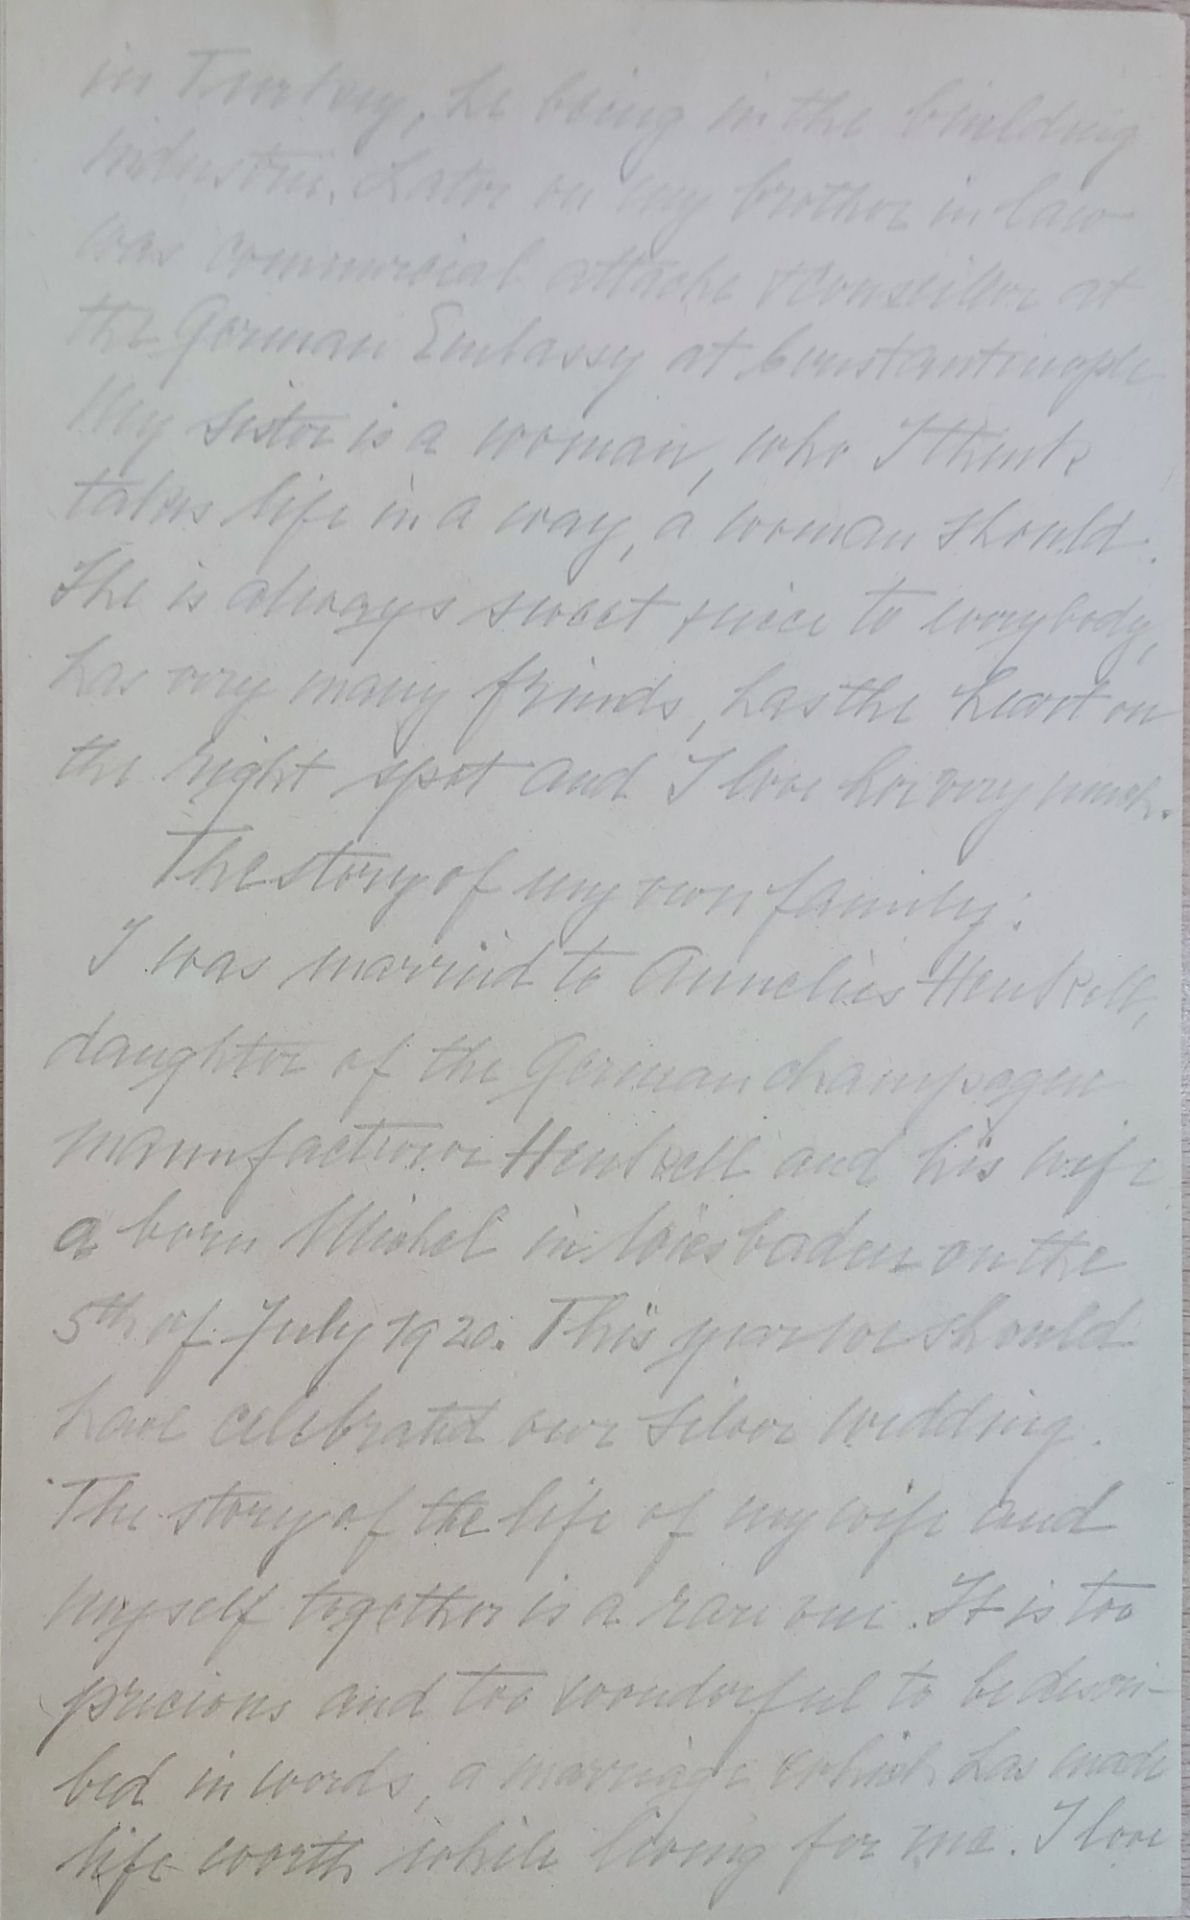 in Turkey, he being in the building
industrie. Later on my brother in law
was commercial attache & Conseillor at
the German Embassy at Constantinople
My sister is a woman, who I think
takes life in a way, a woman should.
She is always sweet & nice to everybody,
has very many friends, has the heart on
the right spot and I love her very much.
The story of my own family:
I was married to Annelies Henkell,
daughter of the German champagne
manufacturer Henkell and his wife
a born Michel in Wiesbaden on the
5th of July 1920. This year we should
have celebrated our silver wedding.
The story of the life of my wife and
myself together is a rare one. It is too
precious and too wonderful to be descri-
bed in words, a marriage which has made
life worth while living for me. I love